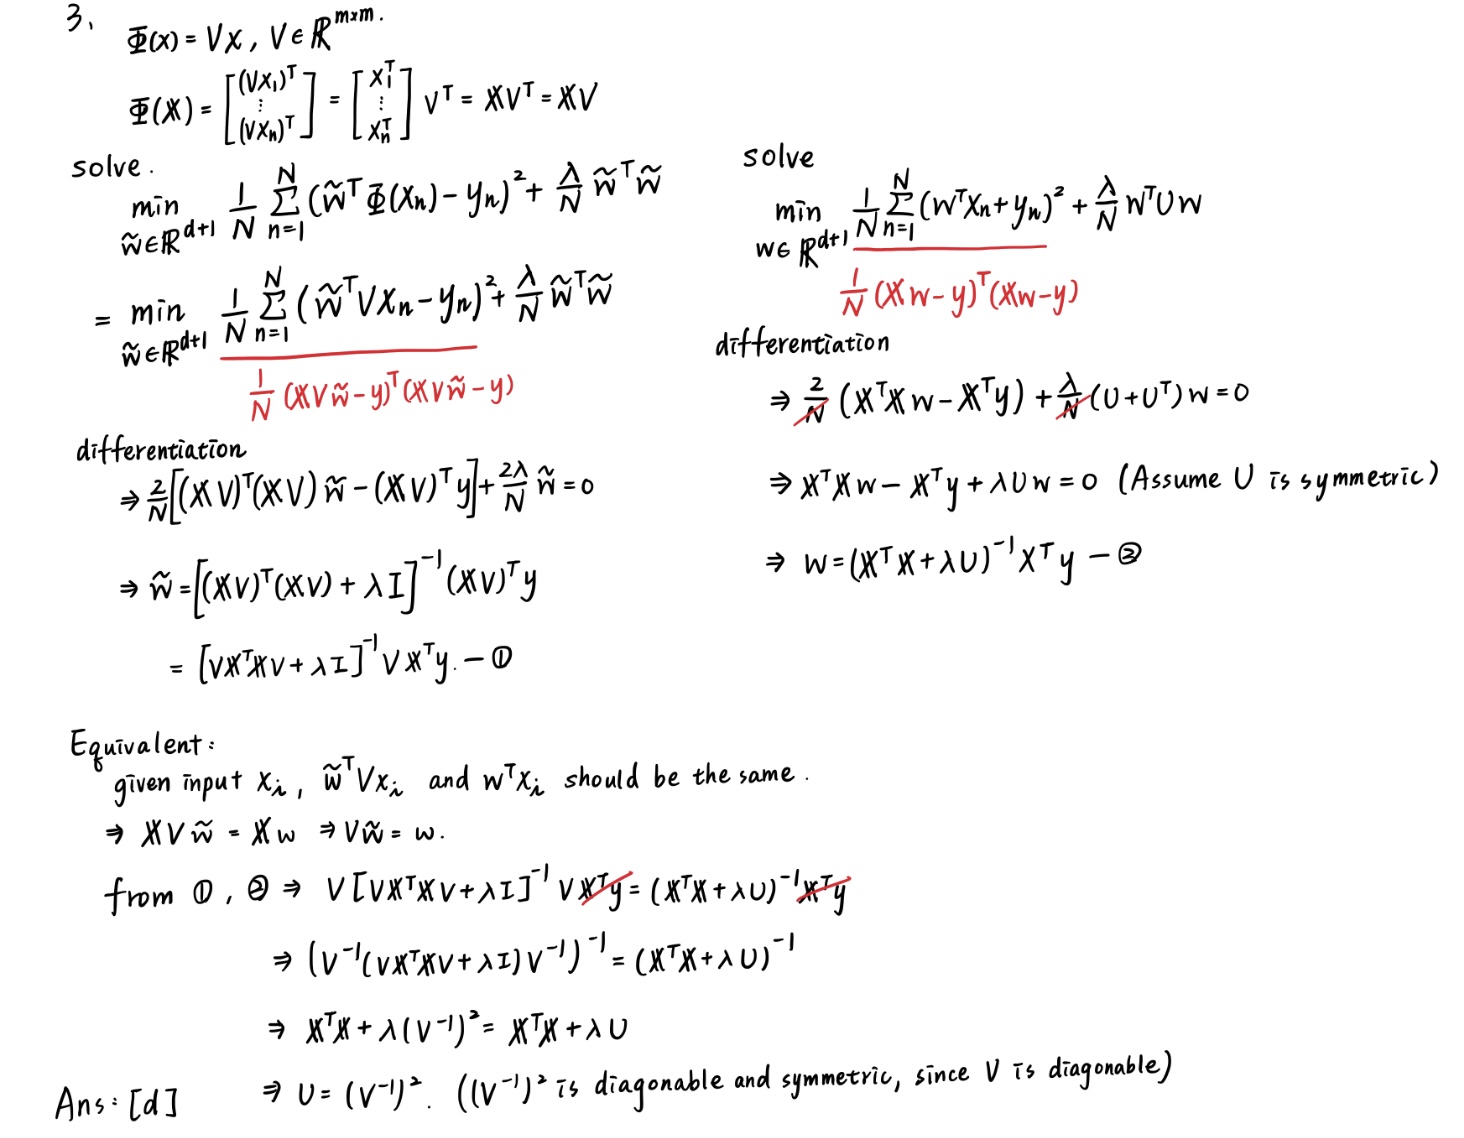 3.
Φ(x) = Vx, V ∈ ℝ^{m×m}.
Φ(X) = [(Vx₁)ᵀ ⋮ (Vxₙ)ᵀ] = [x₁ᵀ ⋮ xₙᵀ] Vᵀ = XVᵀ = XV
solve.
min_{w̃∈ℝ^{d+1}} 1/N Σ_{n=1}^{N} (w̃ᵀΦ(xₙ) − yₙ)² + λ/N w̃ᵀw̃
= min_{w̃∈ℝ^{d+1}} 1/N Σ_{n=1}^{N} (w̃ᵀVxₙ − yₙ)² + λ/N w̃ᵀw̃
1/N (XVw̃ − y)ᵀ(XVw̃ − y)
differentiation
⇒ 2/N [(XV)ᵀ(XV) w̃ − (XV)ᵀy] + 2λ/N w̃ = 0
⇒ w̃ = [(XV)ᵀ(XV) + λI]⁻¹ (XV)ᵀy
= [VXᵀXV + λI]⁻¹ VXᵀy. — ①
solve
min_{w∈ℝ^{d+1}} 1/N Σ_{n=1}^{N} (wᵀxₙ + yₙ)² + λ/N wᵀUw
1/N (Xw − y)ᵀ(Xw − y)
differentiation
⇒ 2/N (XᵀXw − Xᵀy) + λ/N (U + Uᵀ)w = 0
⇒ XᵀXw − Xᵀy + λUw = 0 (Assume U is symmetric)
⇒ w = (XᵀX + λU)⁻¹ Xᵀy — ②
Equivalent:
given input xᵢ, w̃ᵀVxᵢ and wᵀxᵢ should be the same.
⇒ XVw̃ = Xw ⇒ Vw̃ = w.
from ①, ② ⇒ V[VXᵀXV + λI]⁻¹ VXᵀy = (XᵀX + λU)⁻¹Xᵀy
⇒ (V⁻¹(VXᵀXV + λI)V⁻¹)⁻¹ = (XᵀX + λU)⁻¹
⇒ XᵀX + λ(V⁻¹)² = XᵀX + λU
⇒ U = (V⁻¹)². ((V⁻¹)² is diagonable and symmetric, since V is diagonable)
Ans: [d]